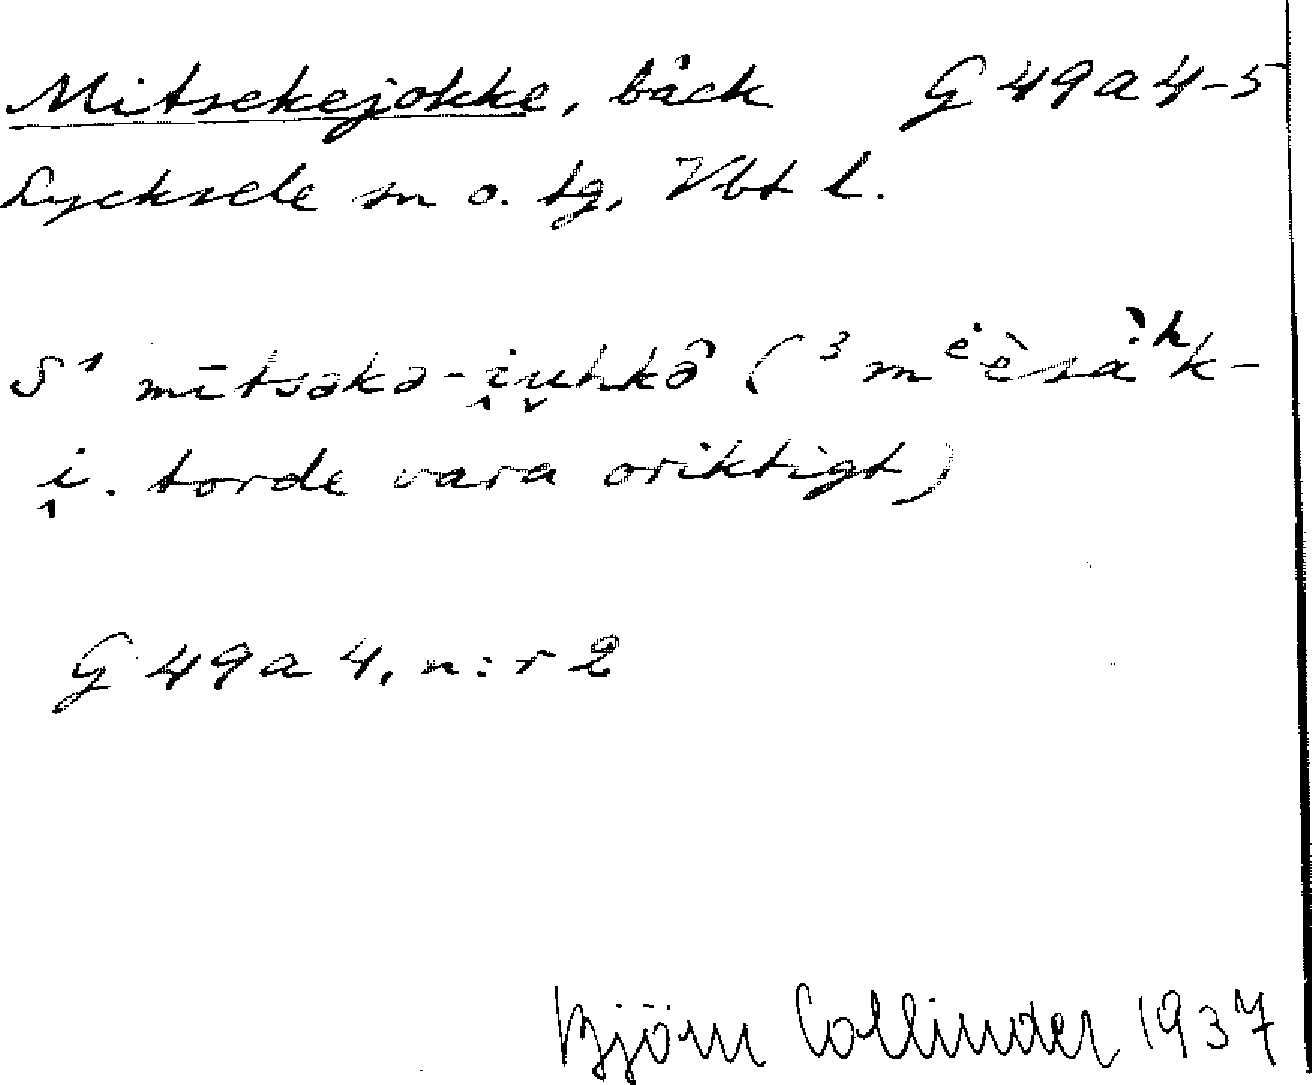 Mitsekejokke, bäck G 49a 4-5
Lycksele sn o. tg, Vbt l.
S¹ mītsəkə-i̭u̬hkə̑ (³mėèsàʰk-
i̭. torde vara oriktigt)
G 49a 4, n:r 2
Björn Collinder 1937